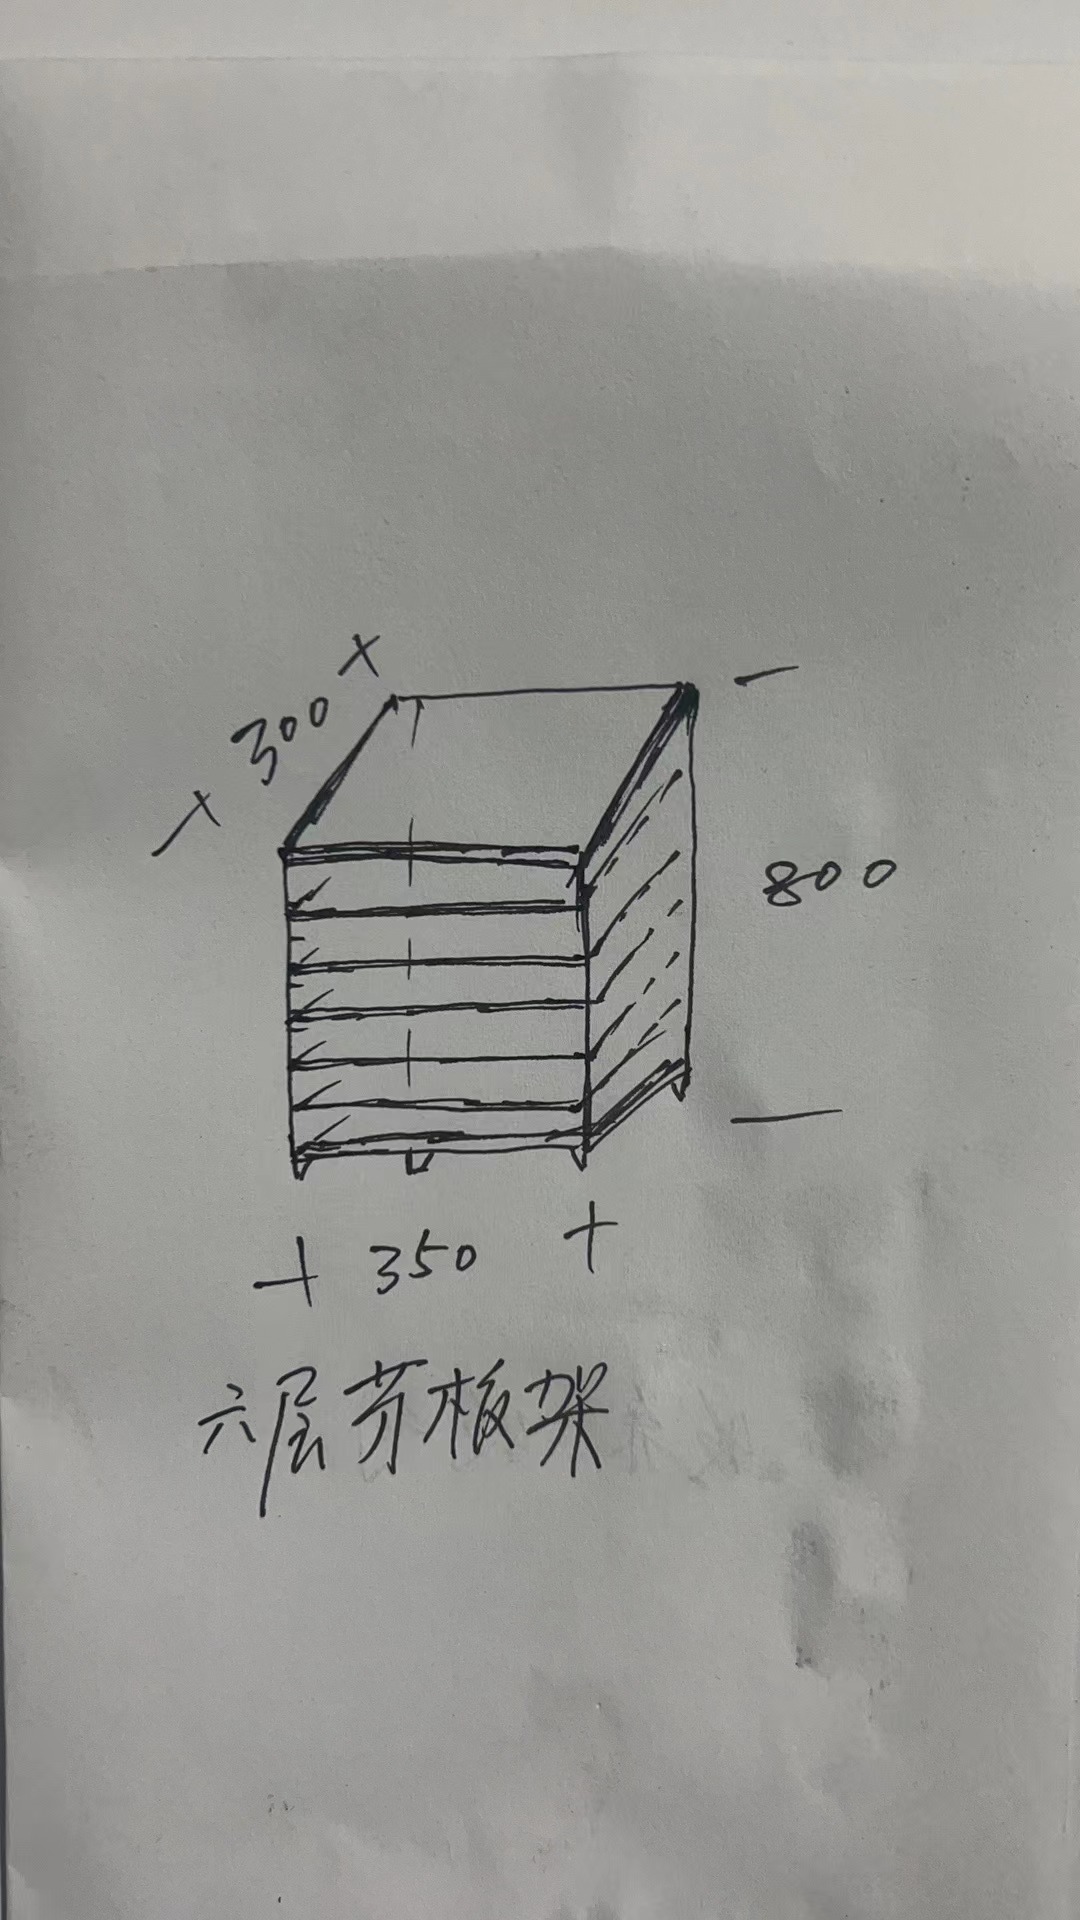 300
800
350
六层芥板架